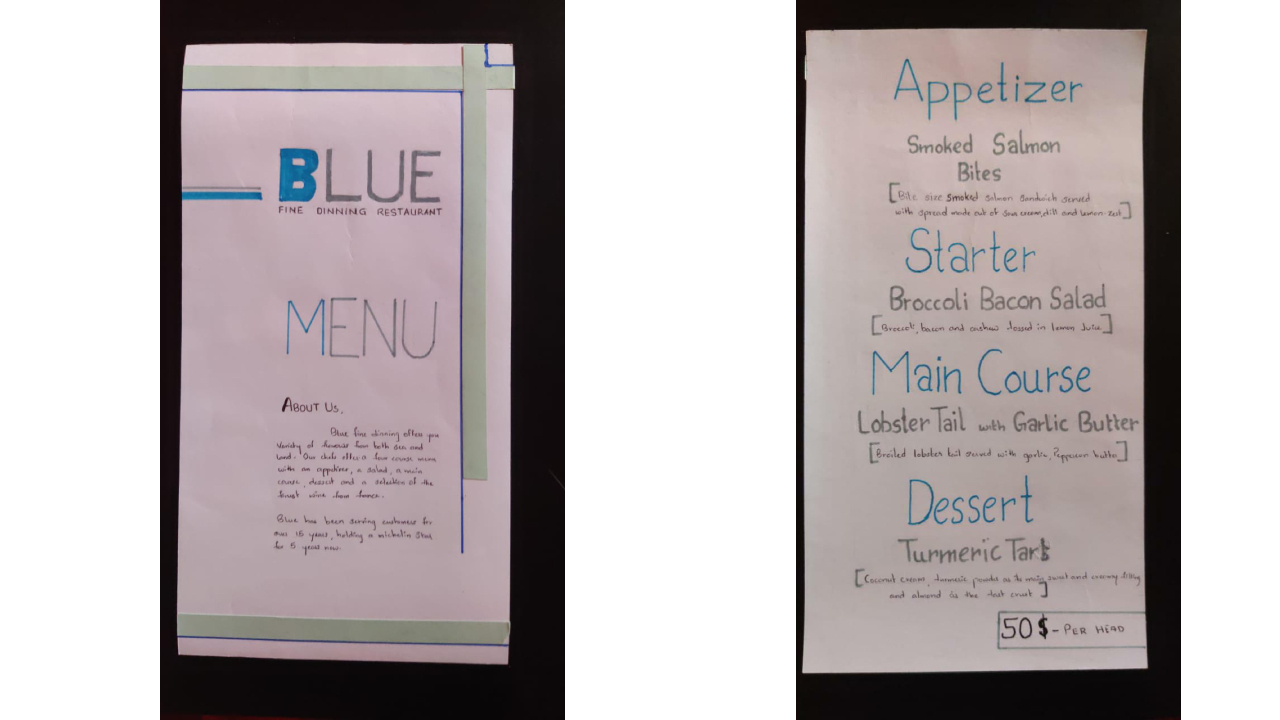 BLUE
FINE DINNING RESTAURANT
MENU
ABOUT US,
Blue fine dinning offers you
variety of flavours from both sea and
land. Our chefs offer a four course menu
with an appetizer, a salad, a main
course, dessert and a selection of the
finest wine from france.
Blue has been serving customers for
over 15 years, holding a michelin star
for 5 years now.
Appetizer
Smoked Salmon
Bites
[Bite size smoked salmon sandwich served
with spread made out of sour cream, dill and lemon zest]
Starter
Broccoli Bacon Salad
[Broccoli, bacon and cashew tossed in lemon juice]
Main Course
Lobster Tail with Garlic Butter
[Broiled lobster tail served with garlic, Peppercorn butter]
Dessert
Turmeric Tart
[Coconut cream, turmeric powder as its main sweet and creamy filling
and almond as the tart crust]
50$ - PER HEAD